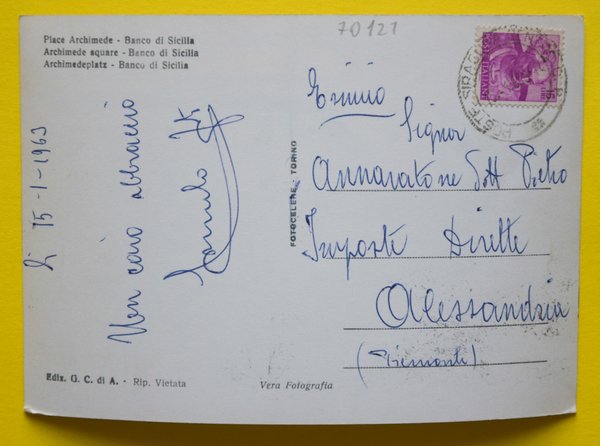 70121
Place Archimede - Banco di Sicilia
Archimede square - Banco di Sicilia
Archimedeplatz - Banco di Sicilia
lì 15-1-1963
Un caro abbraccio
FOTOCELERE - TORINO
POSTE ITALIANE
Esimio
Signor
Annaratone Dott Pietro
Imposte Dirette
Alessandria
(Piemonte)
Ediz. G. C. di A. - Rip. Vietata
Vera Fotografia